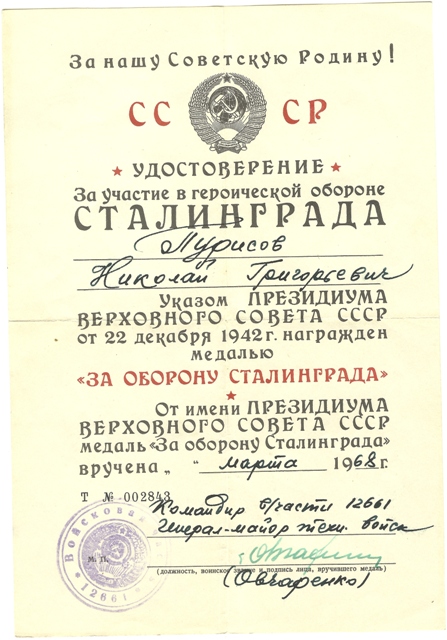 За нашу Советскую Родину!
СС СР
УДОСТОВЕРЕНИЕ
За участие в героической обороне
СТАЛИНГРАДА
Пурисов
Николай Григорьевич
Указом ПРЕЗИДИУМА
ВЕРХОВНОГО СОВЕТА СССР
от 22 декабря 1942 г. награжден
медалью
«ЗА ОБОРОНУ СТАЛИНГРАДА»
От имени ПРЕЗИДИУМА
ВЕРХОВНОГО СОВЕТА СССР
медаль «За оборону Сталинграда»
вручена „ “ марта 1968 г.
Т № 002843
Командир в/части 12661
Генерал-майор техн. войск
М. П.
(должность, воинское звание и подпись лица, вручившего медаль)
(Овчаренко)
Войсковая
* 12661 *